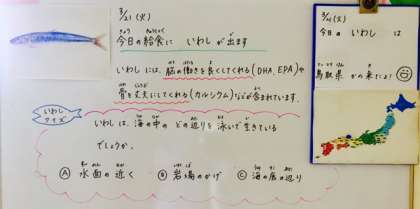 3/21 (火)
今日の給食に いわし が 出ます
いわし には、脳の働きを良くしてくれる (DHA、EPA) や
骨を丈夫にしてくれる (カルシウム) などが 含まれています。
いわし
クイズ
いわし は、海の中の どの辺りを 泳いで 生きている
でしょうか。
Ⓐ 水面の近く Ⓑ 岩場のかげ Ⓒ 海の底の辺り
(火)
今日の いわし は
鳥取県 から来たよ!